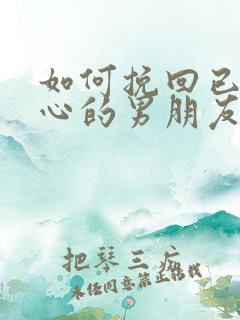 如何挽回已
心的男朋友
把琴三疢
未经同意禁止转载